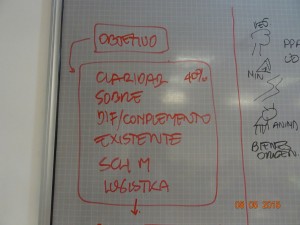 OBJETIVO
CLARIDAD 40%
SOBRE
DIF/COMPLEMENTO
EXISTENTE
SCH M
LOGISTKA
YES
MIN
ANIMA
BIEN
ORIGEN
08 08 2016